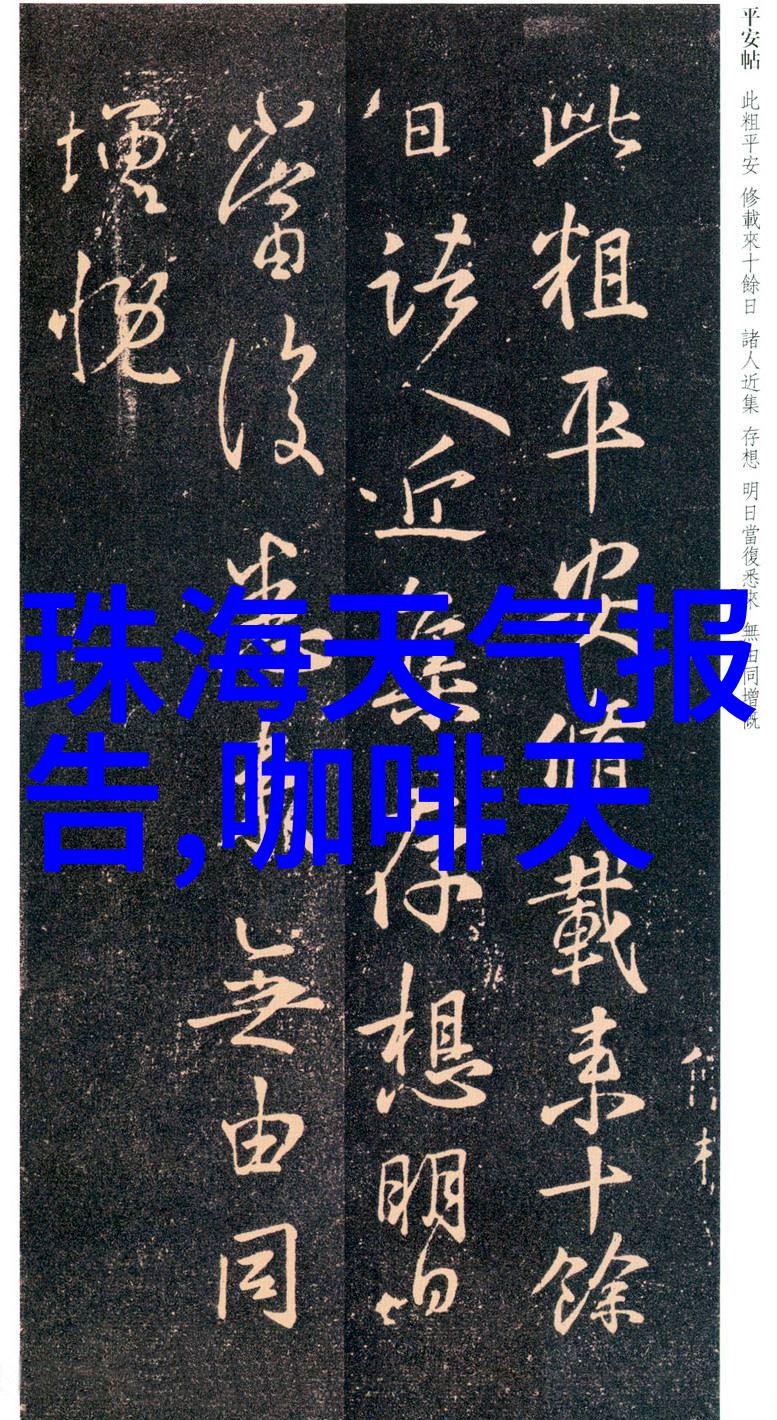 珠海天气报
告,咖啡天
平安帖 此粗平安 修載來十餘日 諸人近集 存想 明日當復悉來 無由同增慨
此粗平安脩載来十餘
日諸人近集存想明日
當復悉来無由同
增慨